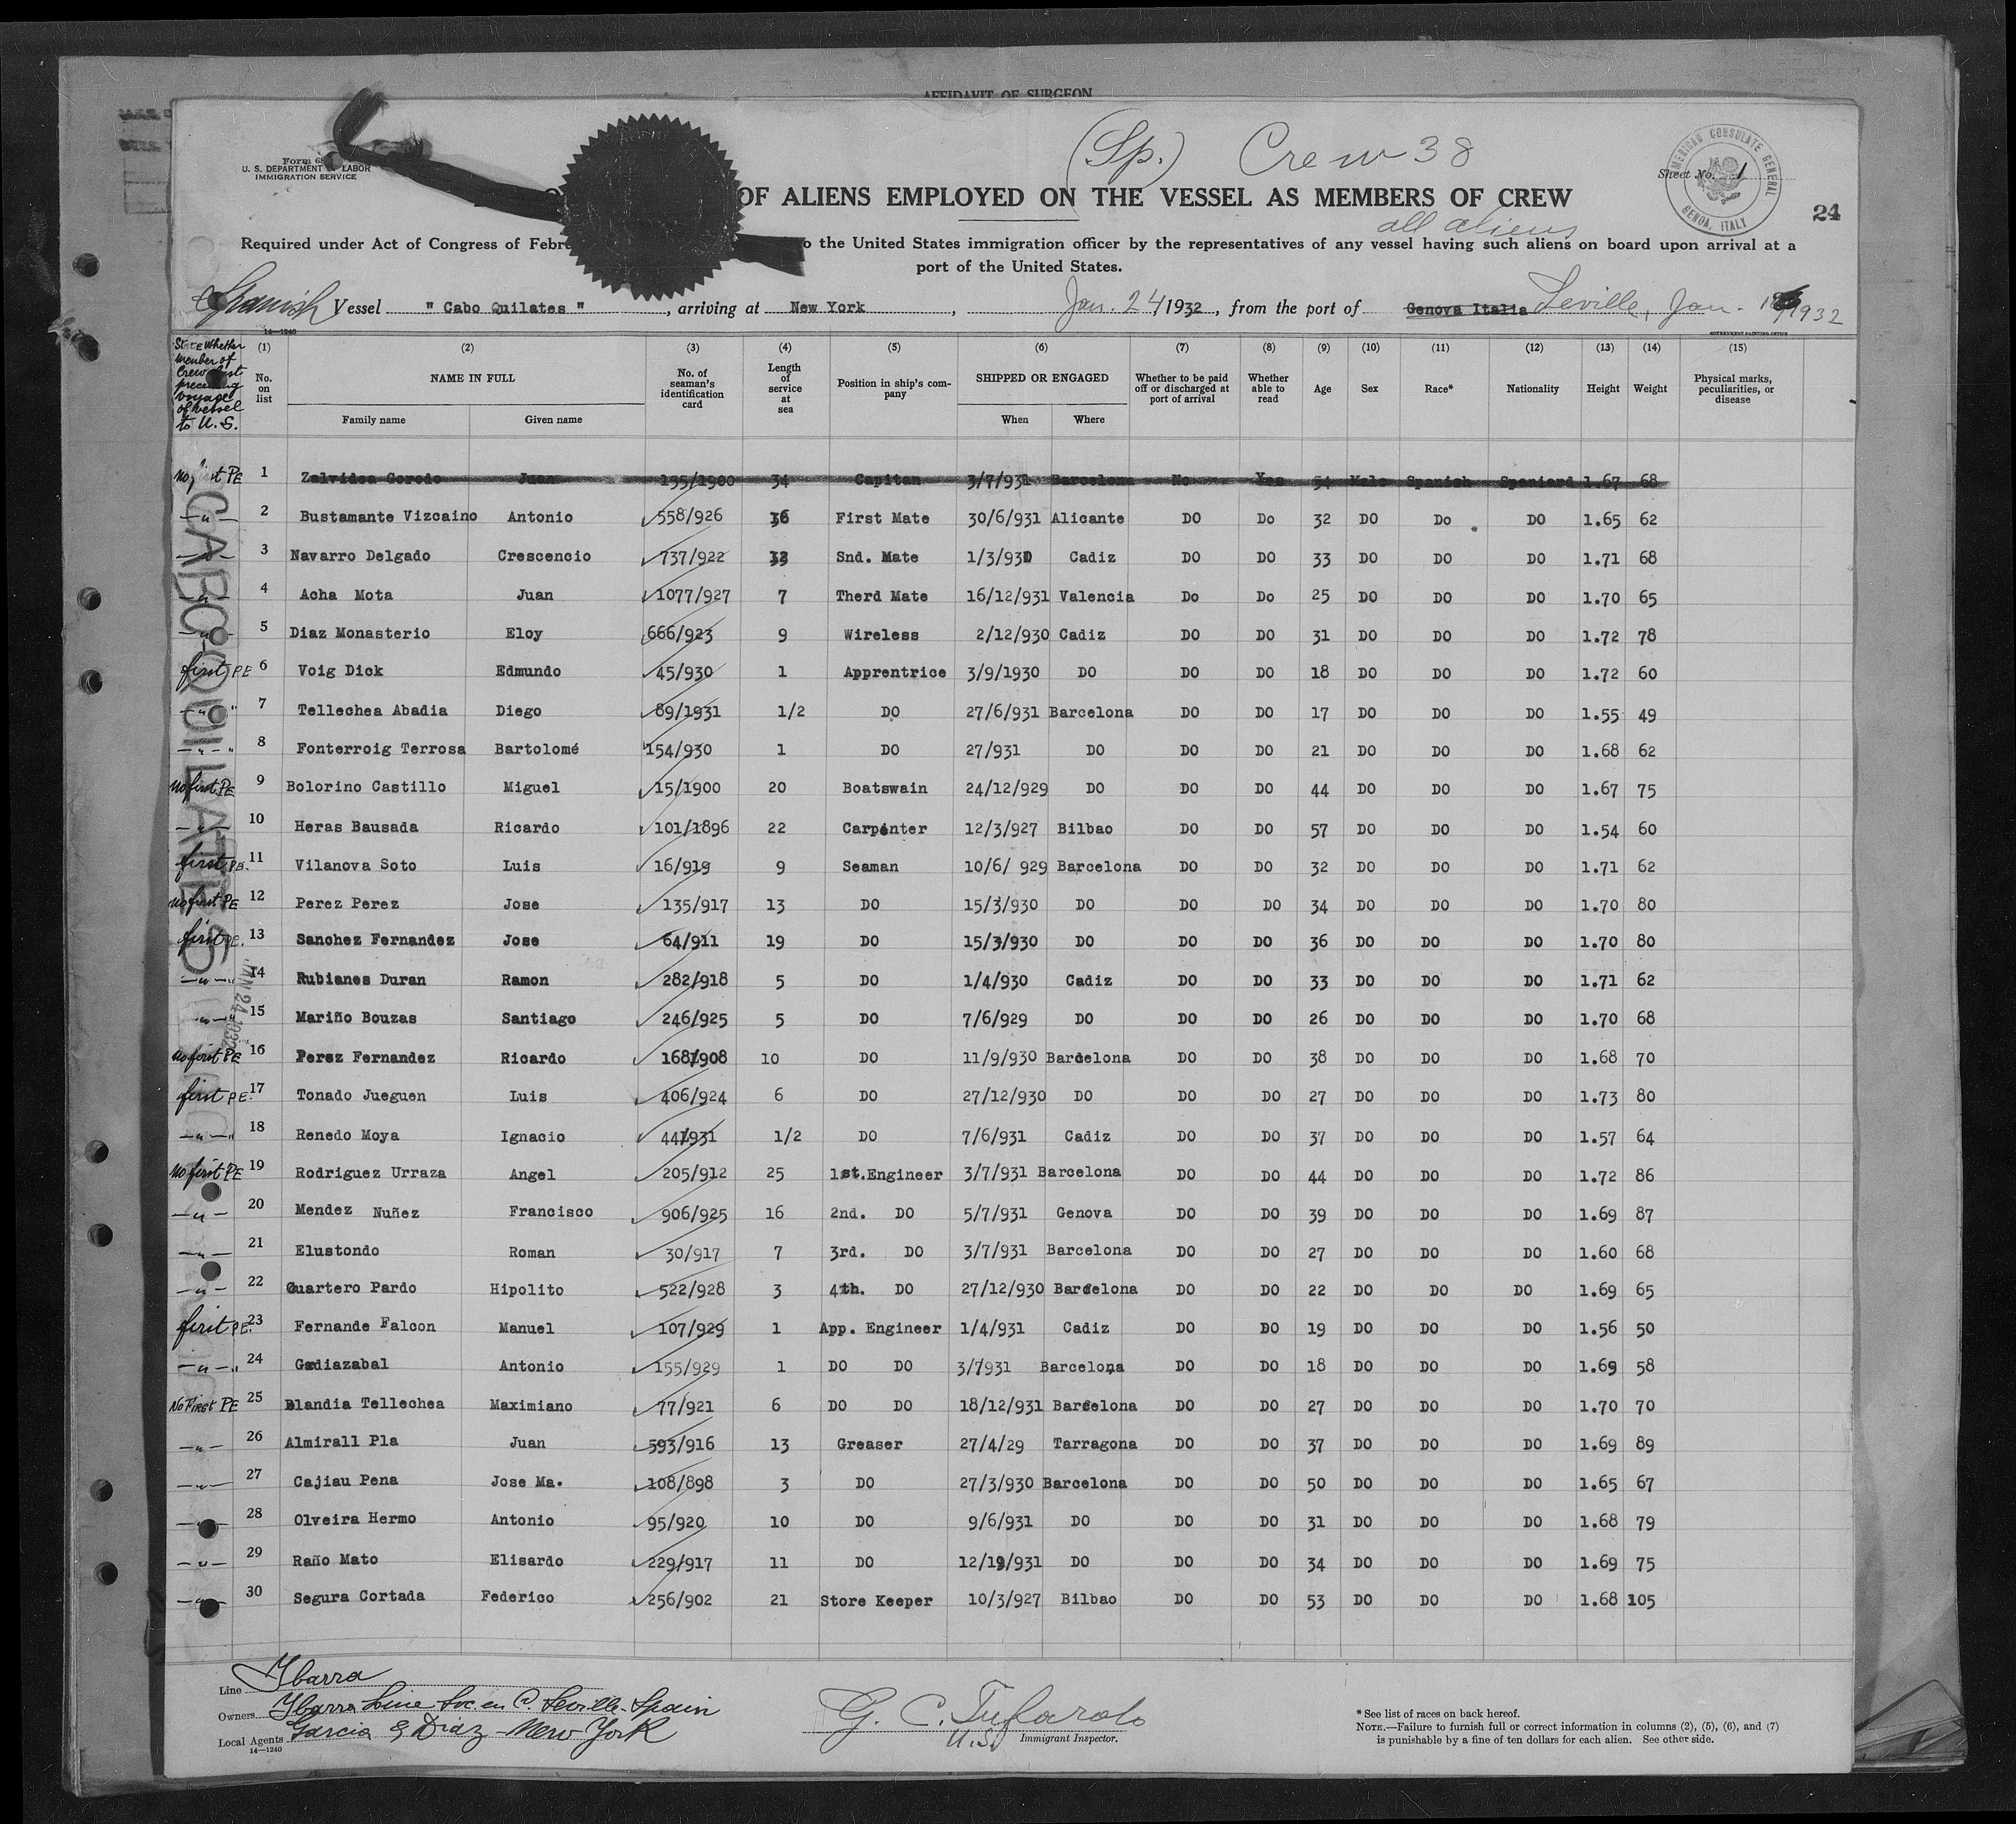 AFFIDAVIT OF SURGEON
(Sp.) Crew 38
Form 68
U. S. DEPARTMENT OF LABOR
IMMIGRATION SERVICE
AMERICAN CONSULATE GENERAL
GENOA, ITALY
Sheet No. 1
OF ALIENS EMPLOYED ON THE VESSEL AS MEMBERS OF CREW
24
all aliens
Required under Act of Congress of Febru o the United States immigration officer by the representatives of any vessel having such aliens on board upon arrival at a
port of the United States.
Spanish Vessel " Cabo Quilates ", arriving at New York, Jan. 24 1932, from the port of Genova Italia Seville, Jan. 1932
14—1240
GOVERNMENT PRINTING OFFICE
State Whether Member of Crew last preceding voyage of vessel to U. S.
(1) (2) (3) (4) (5) (6) (7) (8) (9) (10) (11) (12) (13) (14) (15)
No. on list
NAME IN FULL
Family name Given name
No. of seaman's identification card
Length of service at sea
Position in ship's company
SHIPPED OR ENGAGED
When Where
Whether to be paid off or discharged at port of arrival
Whether able to read
Age Sex Race* Nationality Height Weight
Physical marks, peculiarities, or disease
No first PE 1 Zalvidea Goredo Juan 155/1900 34 Capitan 3/7/931 Barcelona No Yes 54 Male Spanish Spaniard 1.67 68
—"— 2 Bustamante Vizcaino Antonio 558/926 36 First Mate 30/6/931 Alicante DO Do 32 DO Do DO 1.65 62
—"— 3 Navarro Delgado Crescencio 737/922 Snd. Mate 1/3/931 Cadiz DO DO 33 DO DO DO 1.71 68
—"— 4 Acha Mota Juan 1077/927 7 Therd Mate 16/12/931 Valencia Do Do 25 DO DO DO 1.70 65
—"— 5 Diaz Monasterio Eloy 666/923 9 Wireless 2/12/930 Cadiz DO DO 31 DO DO DO 1.72 78
first PE 6 Voig Dick Edmundo 45/930 1 Apprentrice 3/9/1930 DO DO DO 18 DO DO DO 1.72 60
—"— " 7 Tellechea Abadia Diego 89/1931 1/2 DO 27/6/931 Barcelona DO DO 17 DO DO DO 1.55 49
—"— " 8 Fonterroig Terrosa Bartolomé 154/930 1 DO 27/931 DO DO DO 21 DO DO DO 1.68 62
No first PE 9 Bolorino Castillo Miguel 15/1900 20 Boatswain 24/12/929 DO DO DO 44 DO DO DO 1.67 75
—"— 10 Heras Bausada Ricardo 101/1896 22 Carpenter 12/3/927 Bilbao DO DO 57 DO DO DO 1.54 60
first PE. 11 Vilanova Soto Luis 16/919 9 Seaman 10/6/ 929 Barcelona DO DO 32 DO DO DO 1.71 62
No first PE 12 Perez Perez Jose 135/917 13 DO 15/3/930 DO DO DO 34 DO DO DO 1.70 80
first PE. 13 Sanchez Fernandez Jose 64/911 19 DO 15/3/930 DO DO DO 36 DO DO DO 1.70 80
—"— " 14 Rubianes Duran Ramon 282/918 5 DO 1/4/930 Cadiz DO DO 33 DO DO DO 1.71 62
—"— " 15 Mariño Bouzas Santiago 246/925 5 DO 7/6/929 DO DO DO 26 DO DO DO 1.70 68
No first PE 16 Perez Fernandez Ricardo 168/908 10 DO 11/9/930 Barcelona DO DO 38 DO DO DO 1.68 70
first PE. 17 Tonado Jueguen Luis 406/924 6 DO 27/12/930 DO DO DO 27 DO DO DO 1.73 80
—"— " 18 Renedo Moya Ignacio 44/931 1/2 DO 7/6/931 Cadiz DO DO 37 DO DO DO 1.57 64
No first PE 19 Rodriguez Urraza Angel 205/912 25 1st.Engineer 3/7/931 Barcelona DO DO 44 DO DO DO 1.72 86
—"— 20 Mendez Nuñez Francisco 906/925 16 2nd. DO 5/7/931 Genova DO DO 39 DO DO DO 1.69 87
—"— 21 Elustondo Roman 30/917 7 3rd. DO 3/7/931 Barcelona DO DO 27 DO DO DO 1.60 68
—"— 22 Guartero Pardo Hipolito 522/928 3 4th. DO 27/12/930 Barcelona DO DO 22 DO DO DO 1.69 65
first PE. 23 Fernande Falcon Manuel 107/929 1 App. Engineer 1/4/931 Cadiz DO DO 19 DO DO DO 1.56 50
—"— " 24 Gadiazabal Antonio 155/929 1 DO DO 3/7931 Barcelona DO DO 18 DO DO DO 1.69 58
No First PE 25 Elandia Tellechea Maximiano 77/921 6 DO DO 18/12/931 Barcelona DO DO 27 DO DO DO 1.70 70
—"— 26 Almirall Pla Juan 593/916 13 Greaser 27/4/29 Tarragona DO DO 37 DO DO DO 1.69 89
—"— 27 Cajiau Pena Jose Ma. 108/898 3 DO 27/3/930 Barcelona DO DO 50 DO DO DO 1.65 67
—"— 28 Olveira Hermo Antonio 95/920 10 DO 9/6/931 DO DO DO 31 DO DO DO 1.68 79
—"— 29 Raño Mato Elisardo 229/917 11 DO 12/12/931 DO DO DO 34 DO DO DO 1.69 75
—"— 30 Segura Cortada Federico 256/902 21 Store Keeper 10/3/927 Bilbao DO DO 53 DO DO DO 1.68 105
CABO QUILATES
JAN 24 1932
Line Ybarra
Owners Ybarra Line Soc. en C. Seville-Spain
Local Agents Garcia & Diaz - New York
14—1240
G. C. Tufarolo
U.S. Immigrant Inspector.
* See list of races on back hereof.
NOTE.—Failure to furnish full or correct information in columns (2), (5), (6), and (7)
is punishable by a fine of ten dollars for each alien. See other side.